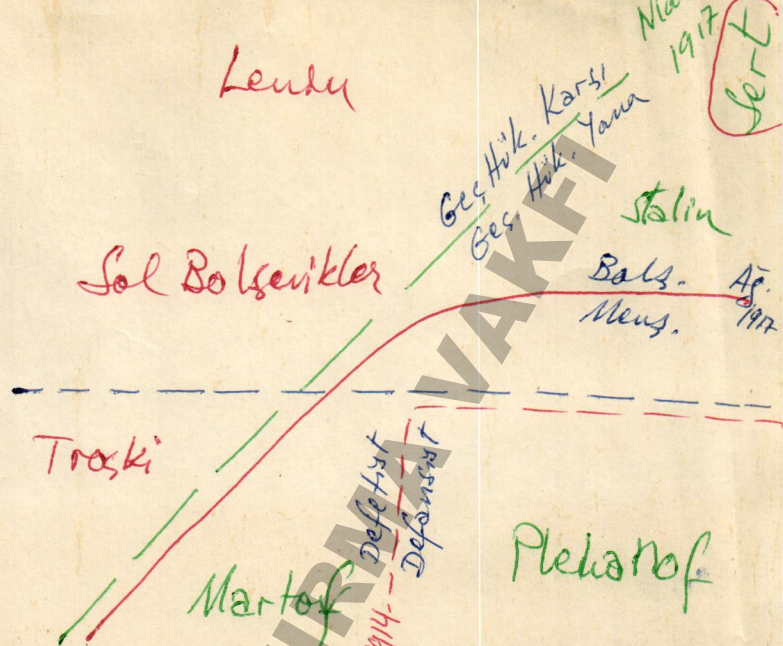 1917
Sert
Lenin
Geç. Hük. Karşı
Geç. Hük. Yana
Stalin
Sol Bolşevikler
Bolş.
Menş.
Ağ.
1917
Troçki
Defetist
Defansist
Martof
Plekanof
VAKFI